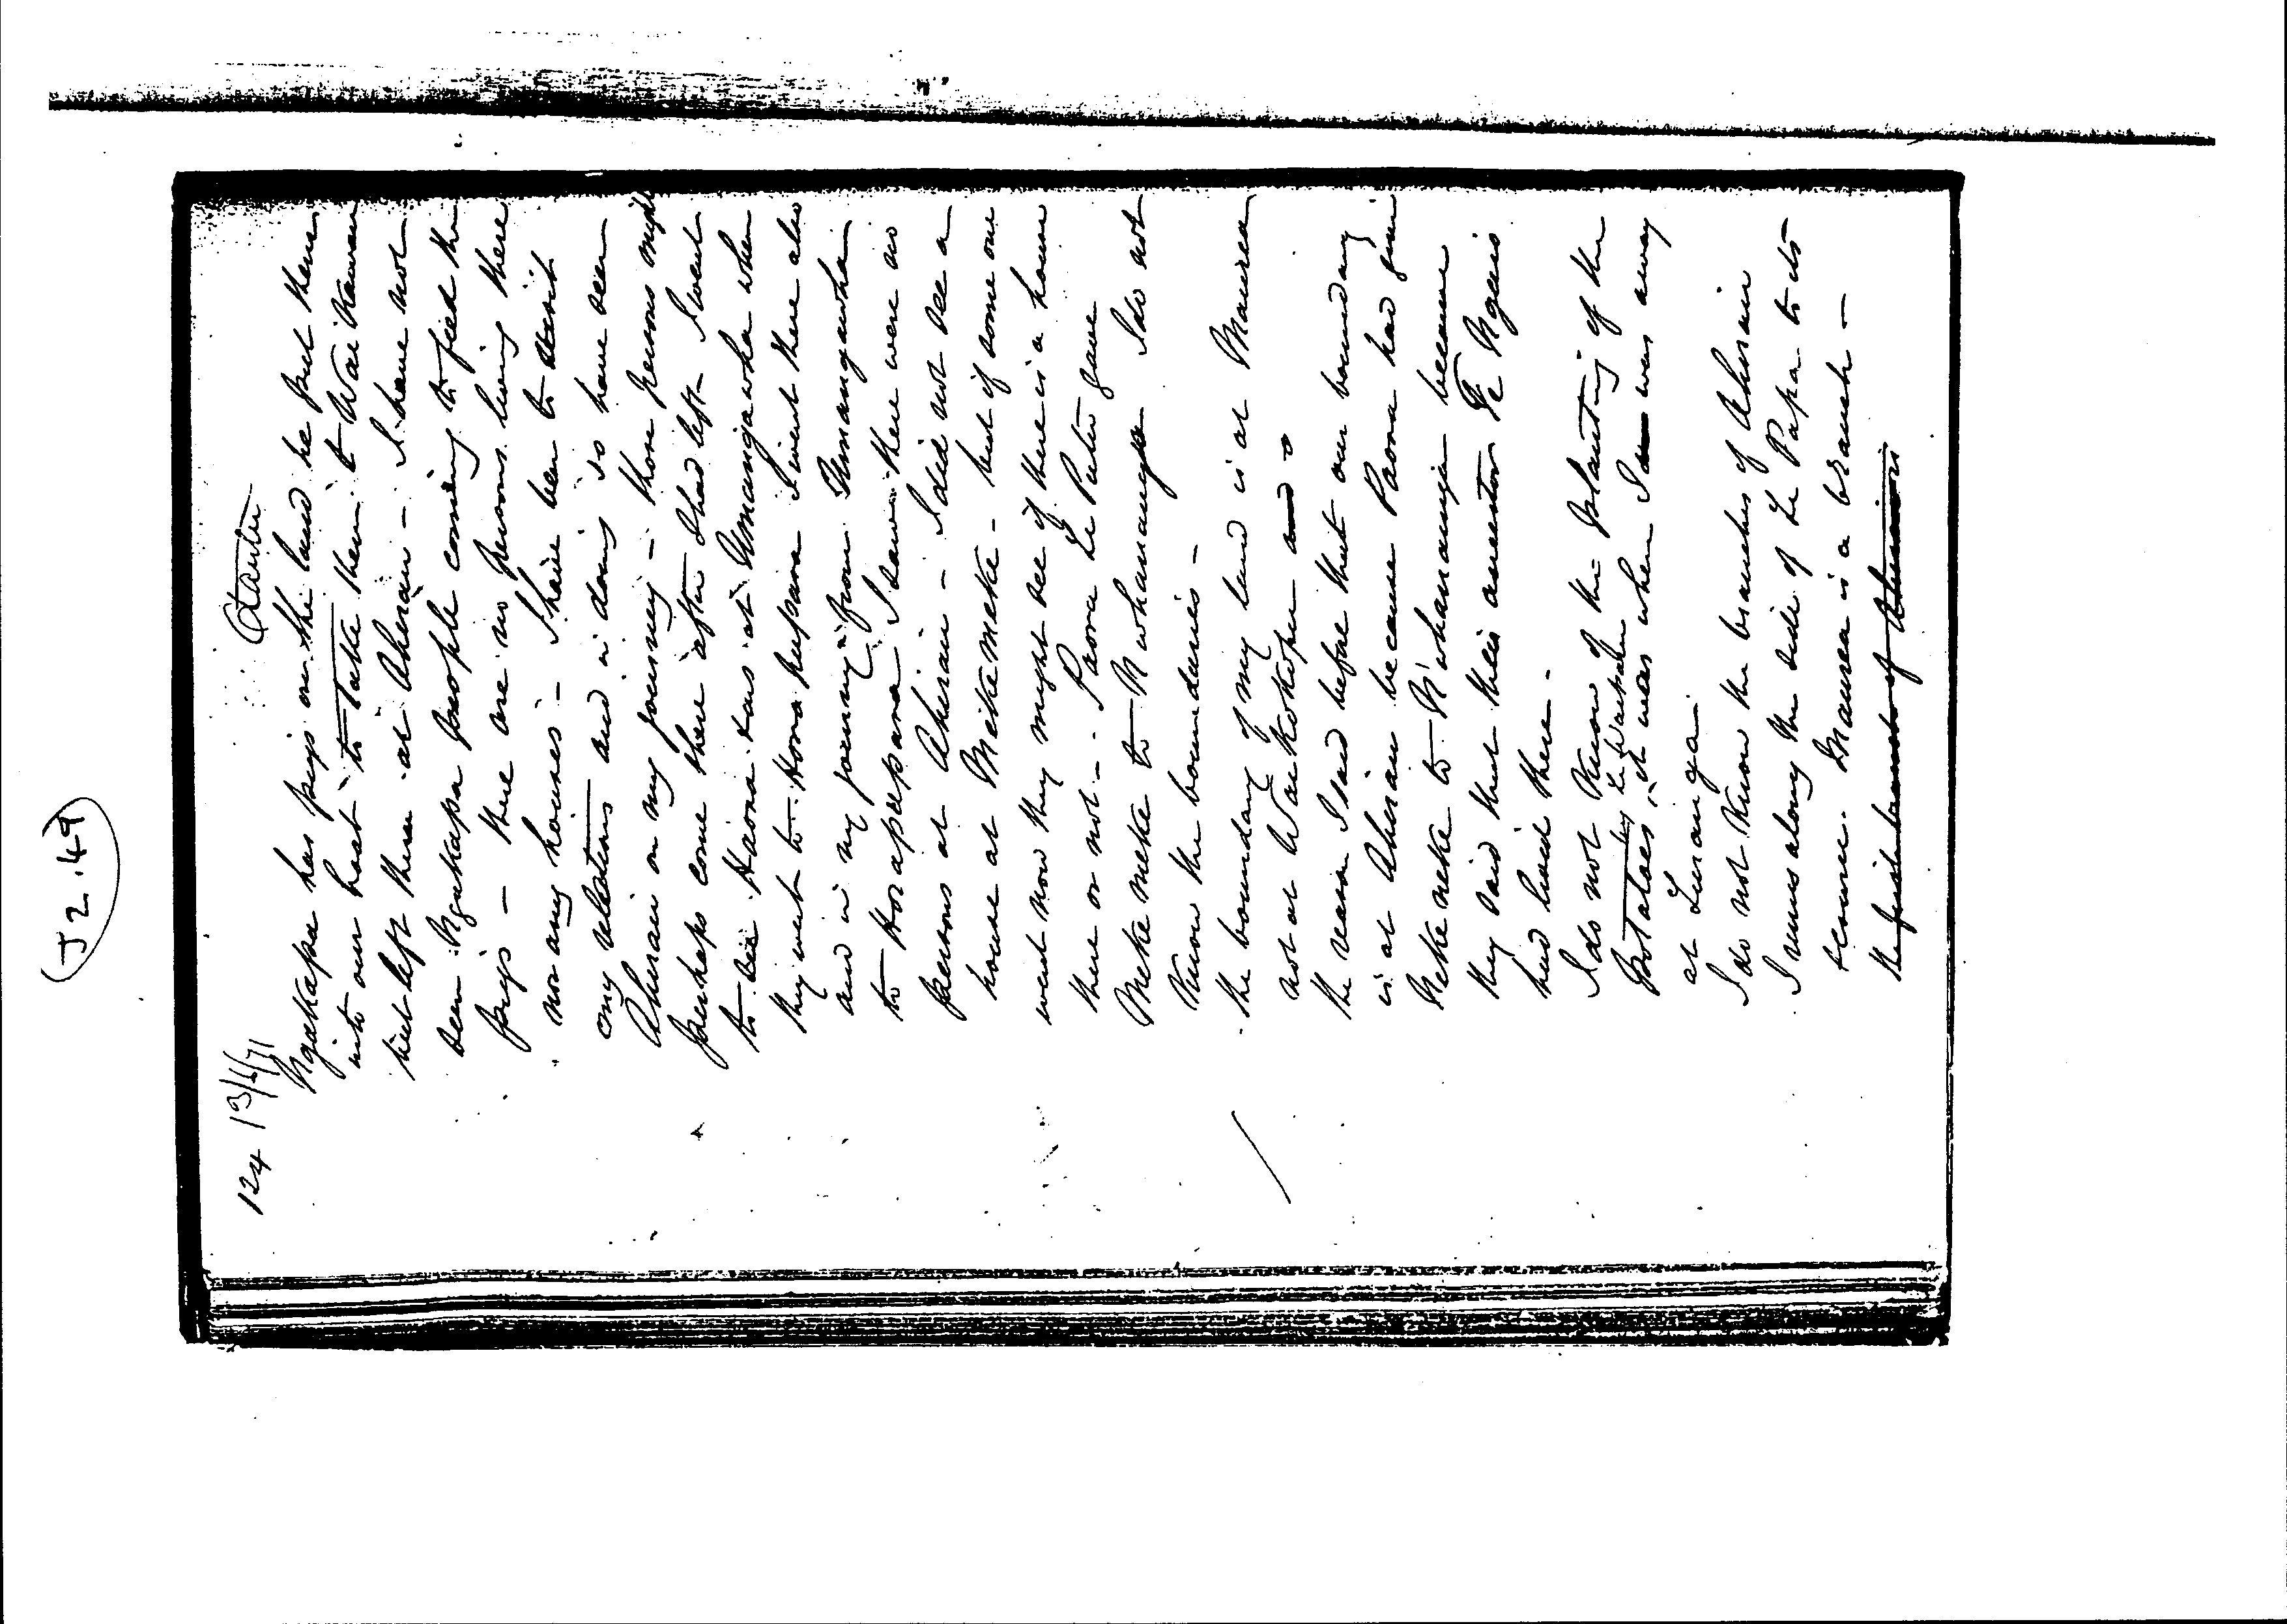 (J2.49)
124 13/4/71
Ngakapa has pigs on the land he put them
into our boat to take them to Wai
but left them at Ahuriri - I have not
seen Ngakapa people coming to feed the
pigs - there are no persons living there
nor any houses - I have been to visit
my relations and in doing so have seen
Ahuriri on my journey - those persons might
perhaps come there after I had left - I went
to see at Umangawha when
they went to I went there also
and in my journey from Umangawha
to I saw there were no
persons at Ahuriri - I did not see a
house at Mekemeke - but if some one
went now they might see if there is a house
there or not - Paora Te Putu gave
Meke meke to N'whanaunga I do not
know the boundaries -
the boundary of my land is at Maurea
not at Waikokopu and
the reason I said before that our boundary
is at Ahuriri because Paora had given
Meke meke to N'whanaunga because
they said that their ancestor Te Ngais
had lived there -
I do not know of the planting of the
Potatoes by Te it was when I was away
at Turanga
I do not know the branches of Ahuriri
I runs along the side of Te Papa to its
source. Maurea is a branch -
the first branch of Ahuriri